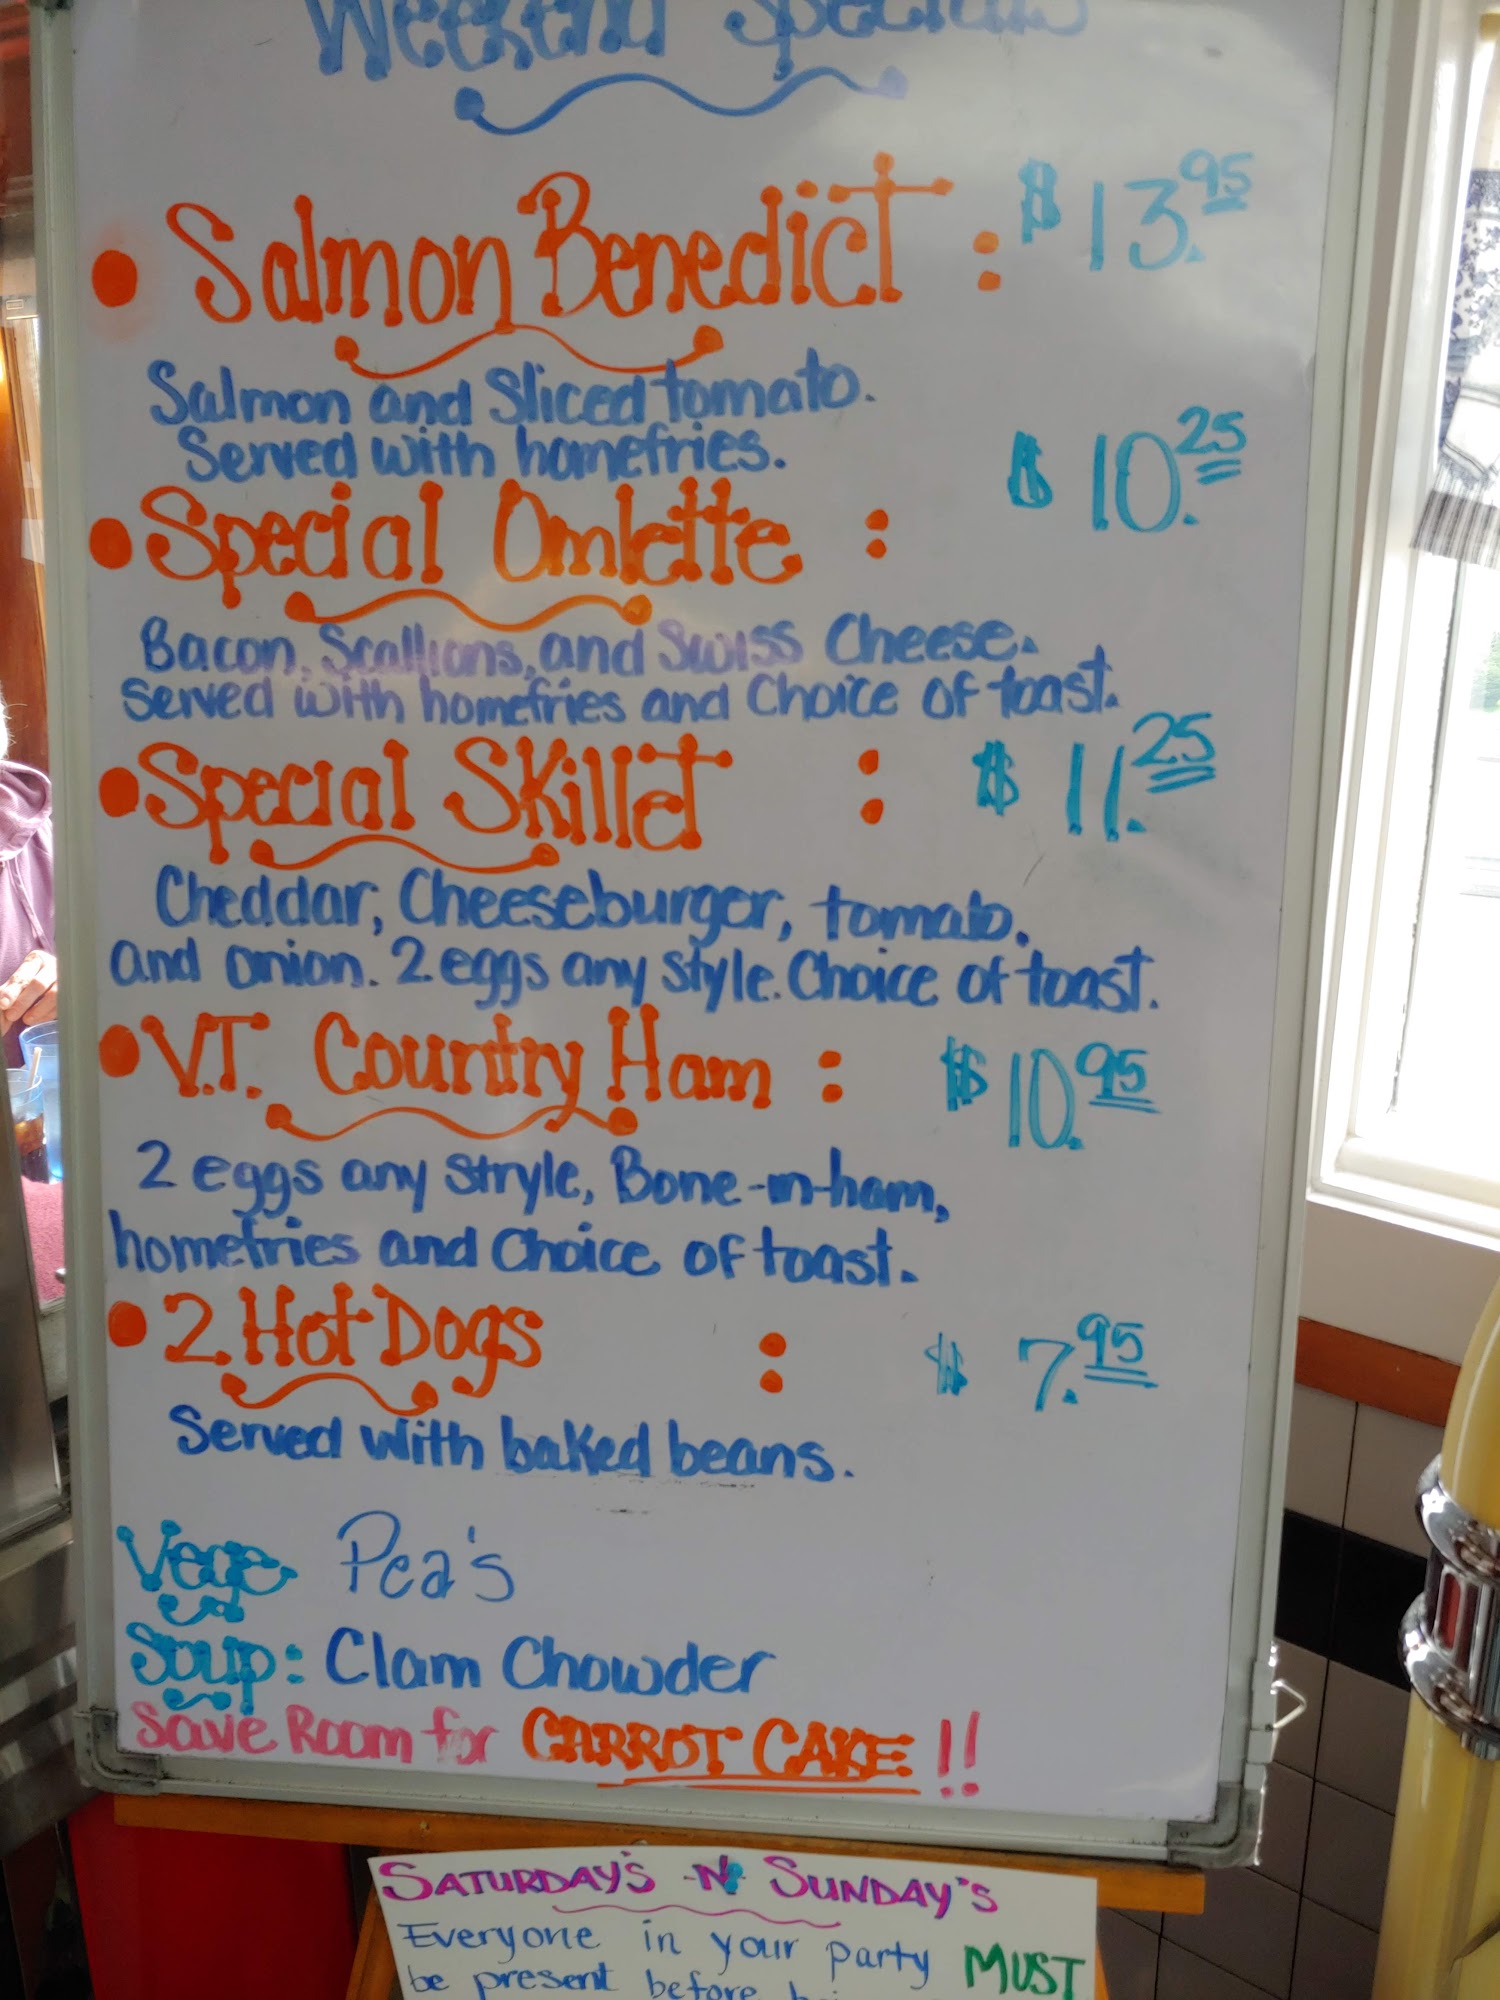 Weekend Specials
• Salmon Benedict : $13.95
Salmon and Sliced tomato.
Served with homefries.
• Special Omlette : $10.25
Bacon, Scallions, and Swiss Cheese.
Served with homefries and Choice of toast.
• Special Skillet : $11.25
Cheddar, Cheeseburger, tomato.
and onion. 2 eggs any style. Choice of toast.
• V.T. Country Ham : $10.95
2 eggs any stryle, Bone-in-ham,
homefries and Choice of toast.
• 2 Hot Dogs : $7.95
Served with baked beans.
Vege Pea's
Soup: Clam Chowder
Save Room for CARROT CAKE!!
SATURDAY'S -N- SUNDAY'S
Everyone in your party MUST
be present before